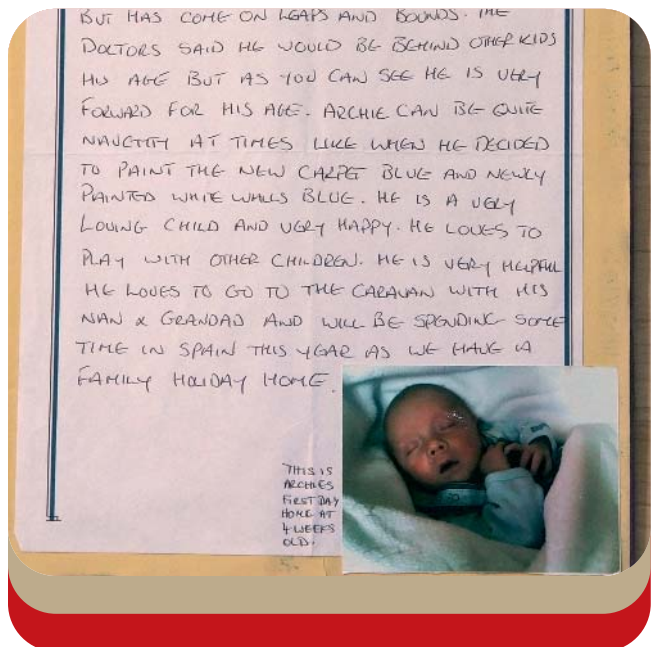 BUT HAS COME ON LEAPS AND BOUNDS. THE
DOCTORS SAID HE WOULD BE BEHIND OTHER KIDS
HIS AGE BUT AS YOU CAN SEE HE IS VERY
FORWARD FOR HIS AGE. ARCHIE CAN BE QUITE
NAUGHTY AT TIMES LIKE WHEN HE DECIDED
TO PAINT THE NEW CARPET BLUE AND NEWLY
PAINTED WHITE WALLS BLUE. HE IS A VERY
LOVING CHILD AND VERY HAPPY. HE LOVES TO
PLAY WITH OTHER CHILDREN. HE IS VERY HELPFUL
HE LOVES TO GO TO THE CARAVAN WITH HIS
NAN & GRANDAD AND WILL BE SPENDING SOME
TIME IN SPAIN THIS YEAR AS WE HAVE A
FAMILY HOLIDAY HOME.
THIS IS
ARCHIES
FIRST DAY
HOME AT
4 WEEKS
OLD.